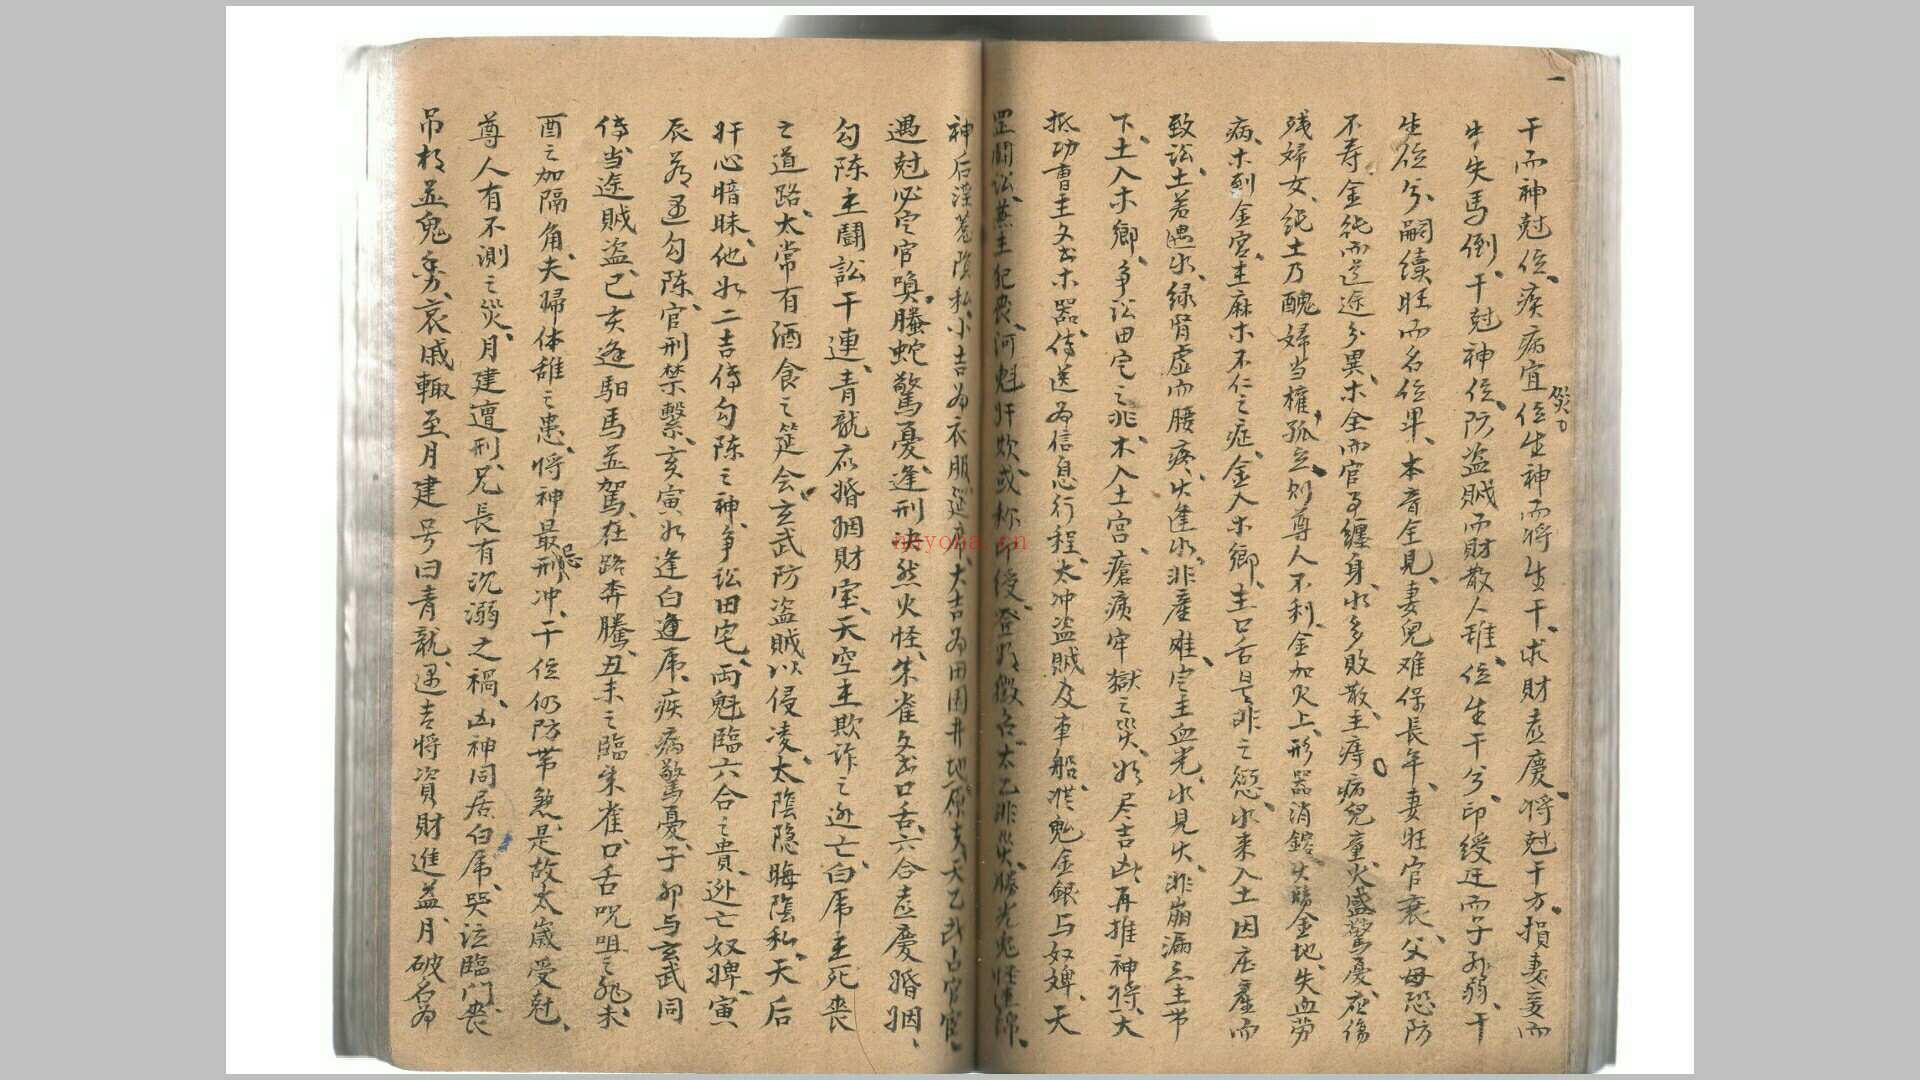 一
干而神尅位、疾病宜位生神而將生干、求財喜慶、將尅干方、損妻妾而
牛失馬倒、干尅神位、防盜賊而財散人離、位生干兮、印綬廷而子孫弱、干
生位兮、嗣續旺而名位卑、本音全見、妻兒难保長年、妻旺官衰、父母恐防
不寿金純而道途分異、木全而官事纏身、水多敗散、主痔病兒童、火盛驚憂、应傷
残婦女、純土乃醜婦当權、孤立、則尊人不利、金加火上、形器消鎔、火臨金地、失血劳
病、木到金宮、主麻木不仁之症、金入木鄉、主口舌是非之愆、水来入土因庄產而
致訟、土若遇水、緑腎虛而腰疼、火逢水、非產难、定主血光、水見火、非崩漏亦主节
下、土入木鄉、争訟田宅之非、木入土宮、瘡痍牢獄之災、災尽吉凶、再推神將、大
抵功曹主文书木器、傳送為信息行程、太冲盜賊及車船、從魁金銀与奴婢、天
罡鬬訟、燕主犯丧、河魁奸欺、或称印綬、登明徵召、太乙非災、勝光鬼怪連綿、
神后淫蕩陰私、小吉為衣服筵席、大吉為田園井地、天乙占官宦、
遇尅必定官嗔、螣蛇驚憂、逢刑决然火怪、朱雀文书口舌、六合喜慶婚姻、
勾陳主鬬訟干連、青龍应婚姻財宝、天空主欺诈之逃亡、白虎主死丧
之道路、太常有酒食之筵会、玄武防盜賊以侵凌、太陰隐晦陰私、天后
奸心暗昧、他如二吉傳勾陳之神、争訟田宅、両魁臨六合之貴、逃亡奴婢、寅
辰若遇勾陳、官刑禁繫、亥寅如逢白虎、疾病驚憂、子卯与玄武同
傳、当途賊盜、巳亥逢馹馬並駕、在路奔騰、丑未之臨朱雀、口舌呪咀之非、卯
酉之加隔角、夫婦体離之患、將神最忌刑冲、干位仍防带煞、是故太歲受尅、
尊人有不測之災、月建遭刑、兄長有沉溺之禍、凶神同居、白虎、哭泣臨門、丧
吊相並鬼劵、哀戚輒至、月建号曰青龍、遇吉將資財進益、月破名為
nayona.cn